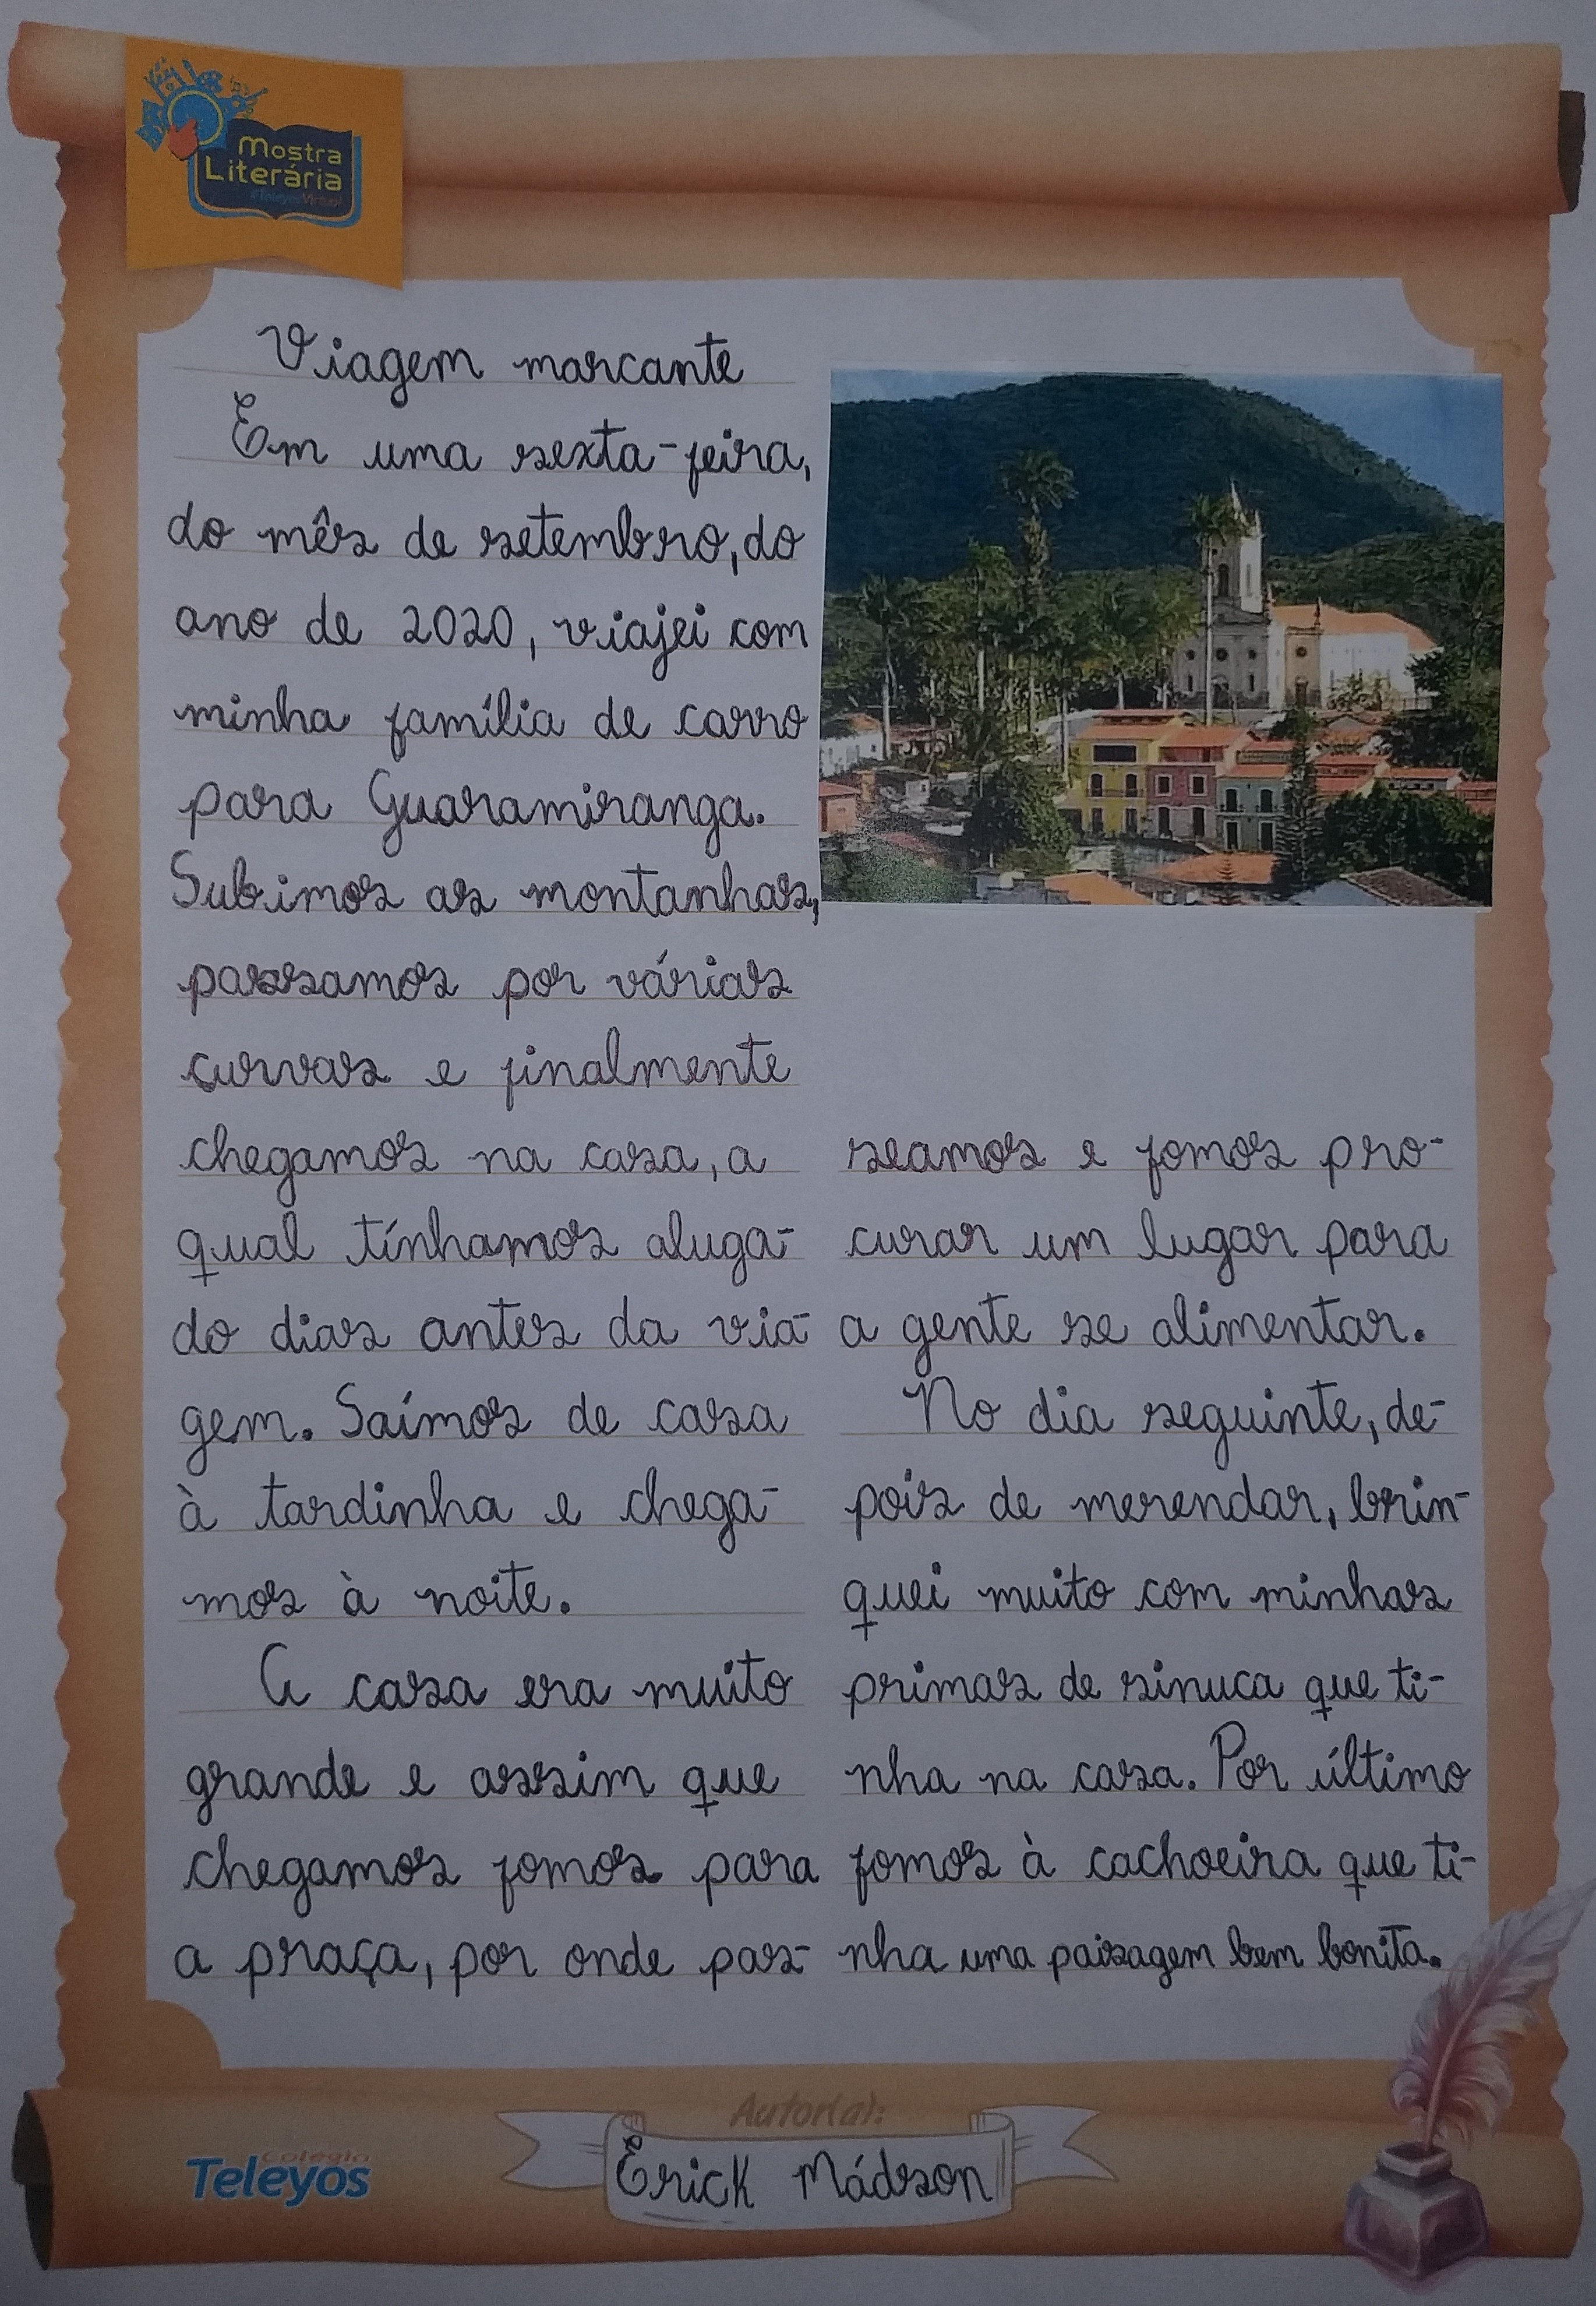 Mostra
Literária
#TeleyosVirtual
Viagem marcante
Em uma sexta-feira,
do mês de setembro, do
ano de 2020, viajei com
minha família de carro
para Guaramiranga.
Subimos as montanhas,
passamos por várias
curvas e finalmente
chegamos na casa, a
qual tínhamos aluga-
do dias antes da via-
gem. Saímos de casa
à tardinha e chega-
mos à noite.
A casa era muito
grande e assim que
chegamos fomos para
a praça, por onde pas-
seamos e fomos pro-
curar um lugar para
a gente se alimentar.
No dia seguinte, de-
pois de merendar, brin-
quei muito com minhas
primas de sinuca que ti-
nha na casa. Por último
fomos à cachoeira que ti-
nha uma paisagem bem bonita.
Autor(a):
Erick Mádson
Colégio
Teleyos